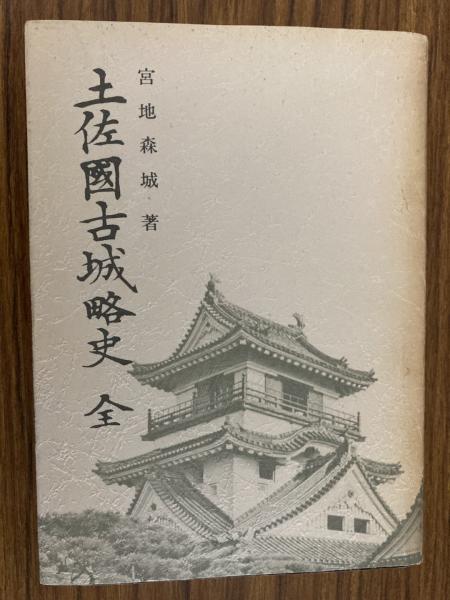 宮地森城 著
土佐國古城略史 全